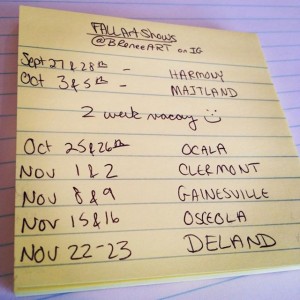 FALL Art Shows
@BReneeART on IG
Sept 27 & 28th - HARMONY
Oct 3 & 5th - MAITLAND
2 week vacay ☺
Oct 25 & 26th OCALA
Nov 1 & 2 CLERMONT
Nov 8 & 9 GAINESVILLE
Nov 15 & 16 OSCEOLA
Nov 22-23 DELAND